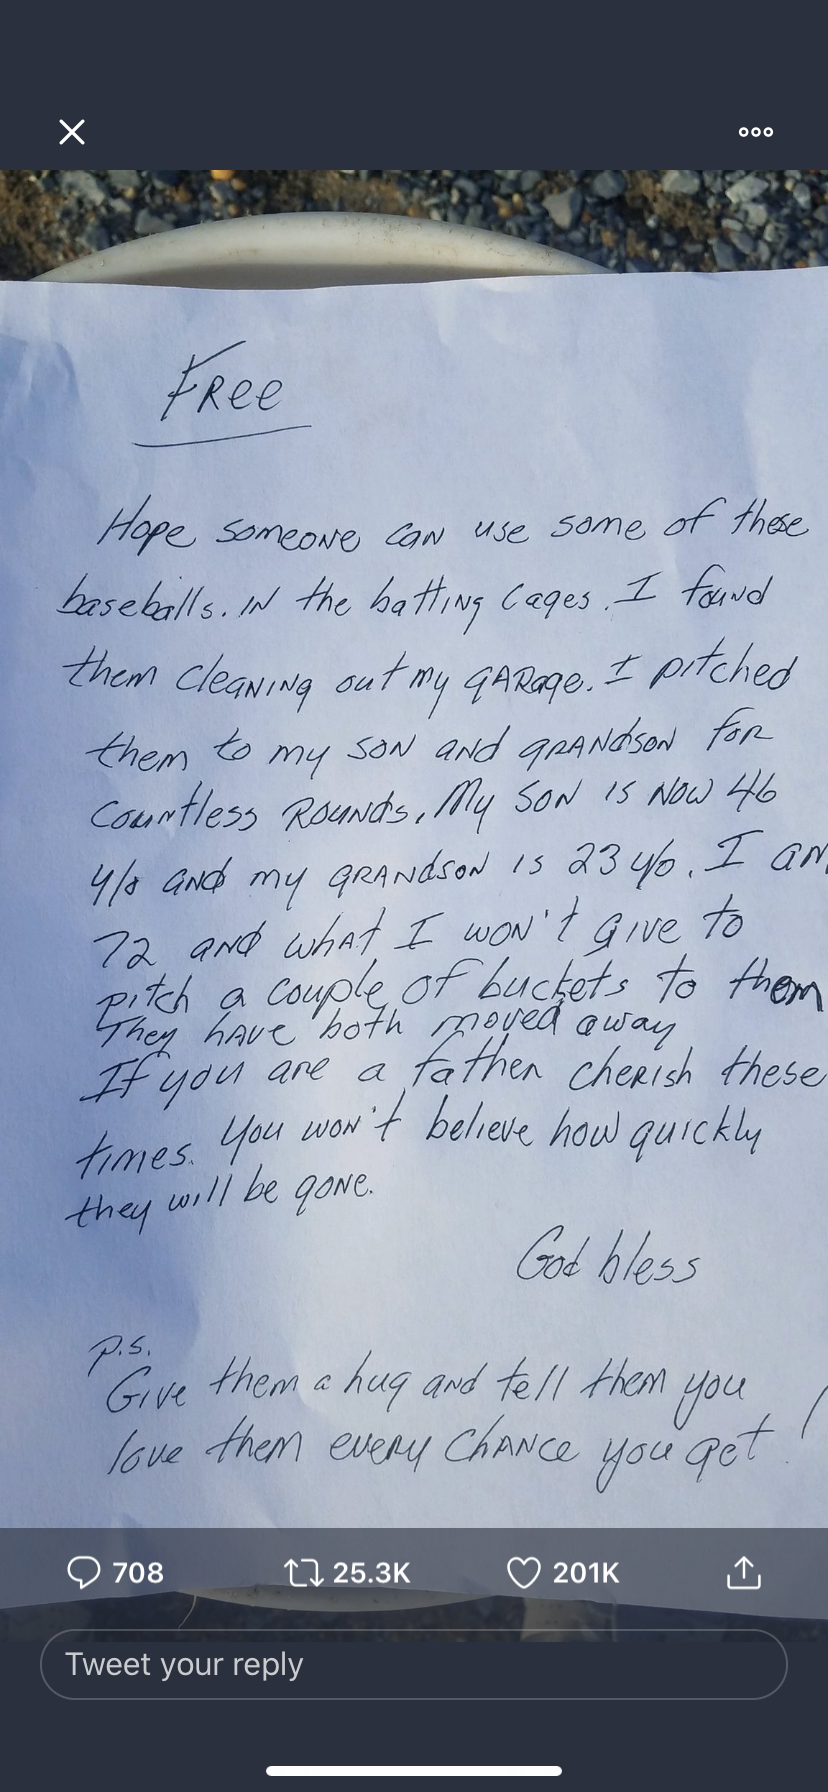 Free
Hope someone can use some of these
baseballs. in the batting cages. I found
them cleaning out my garage. I pitched
them to my son and grandson for
countless rounds. My son is now 46
y/o and my grandson is 23 y/o. I am
72 and what I won't give to
pitch a couple of buckets to them
They have both moved away
If you are a father cherish these
times. You won't believe how quickly
they will be gone.
God bless
p.s.
Give them a hug and tell them you
love them every chance you get!
708 25.3K 201K
Tweet your reply